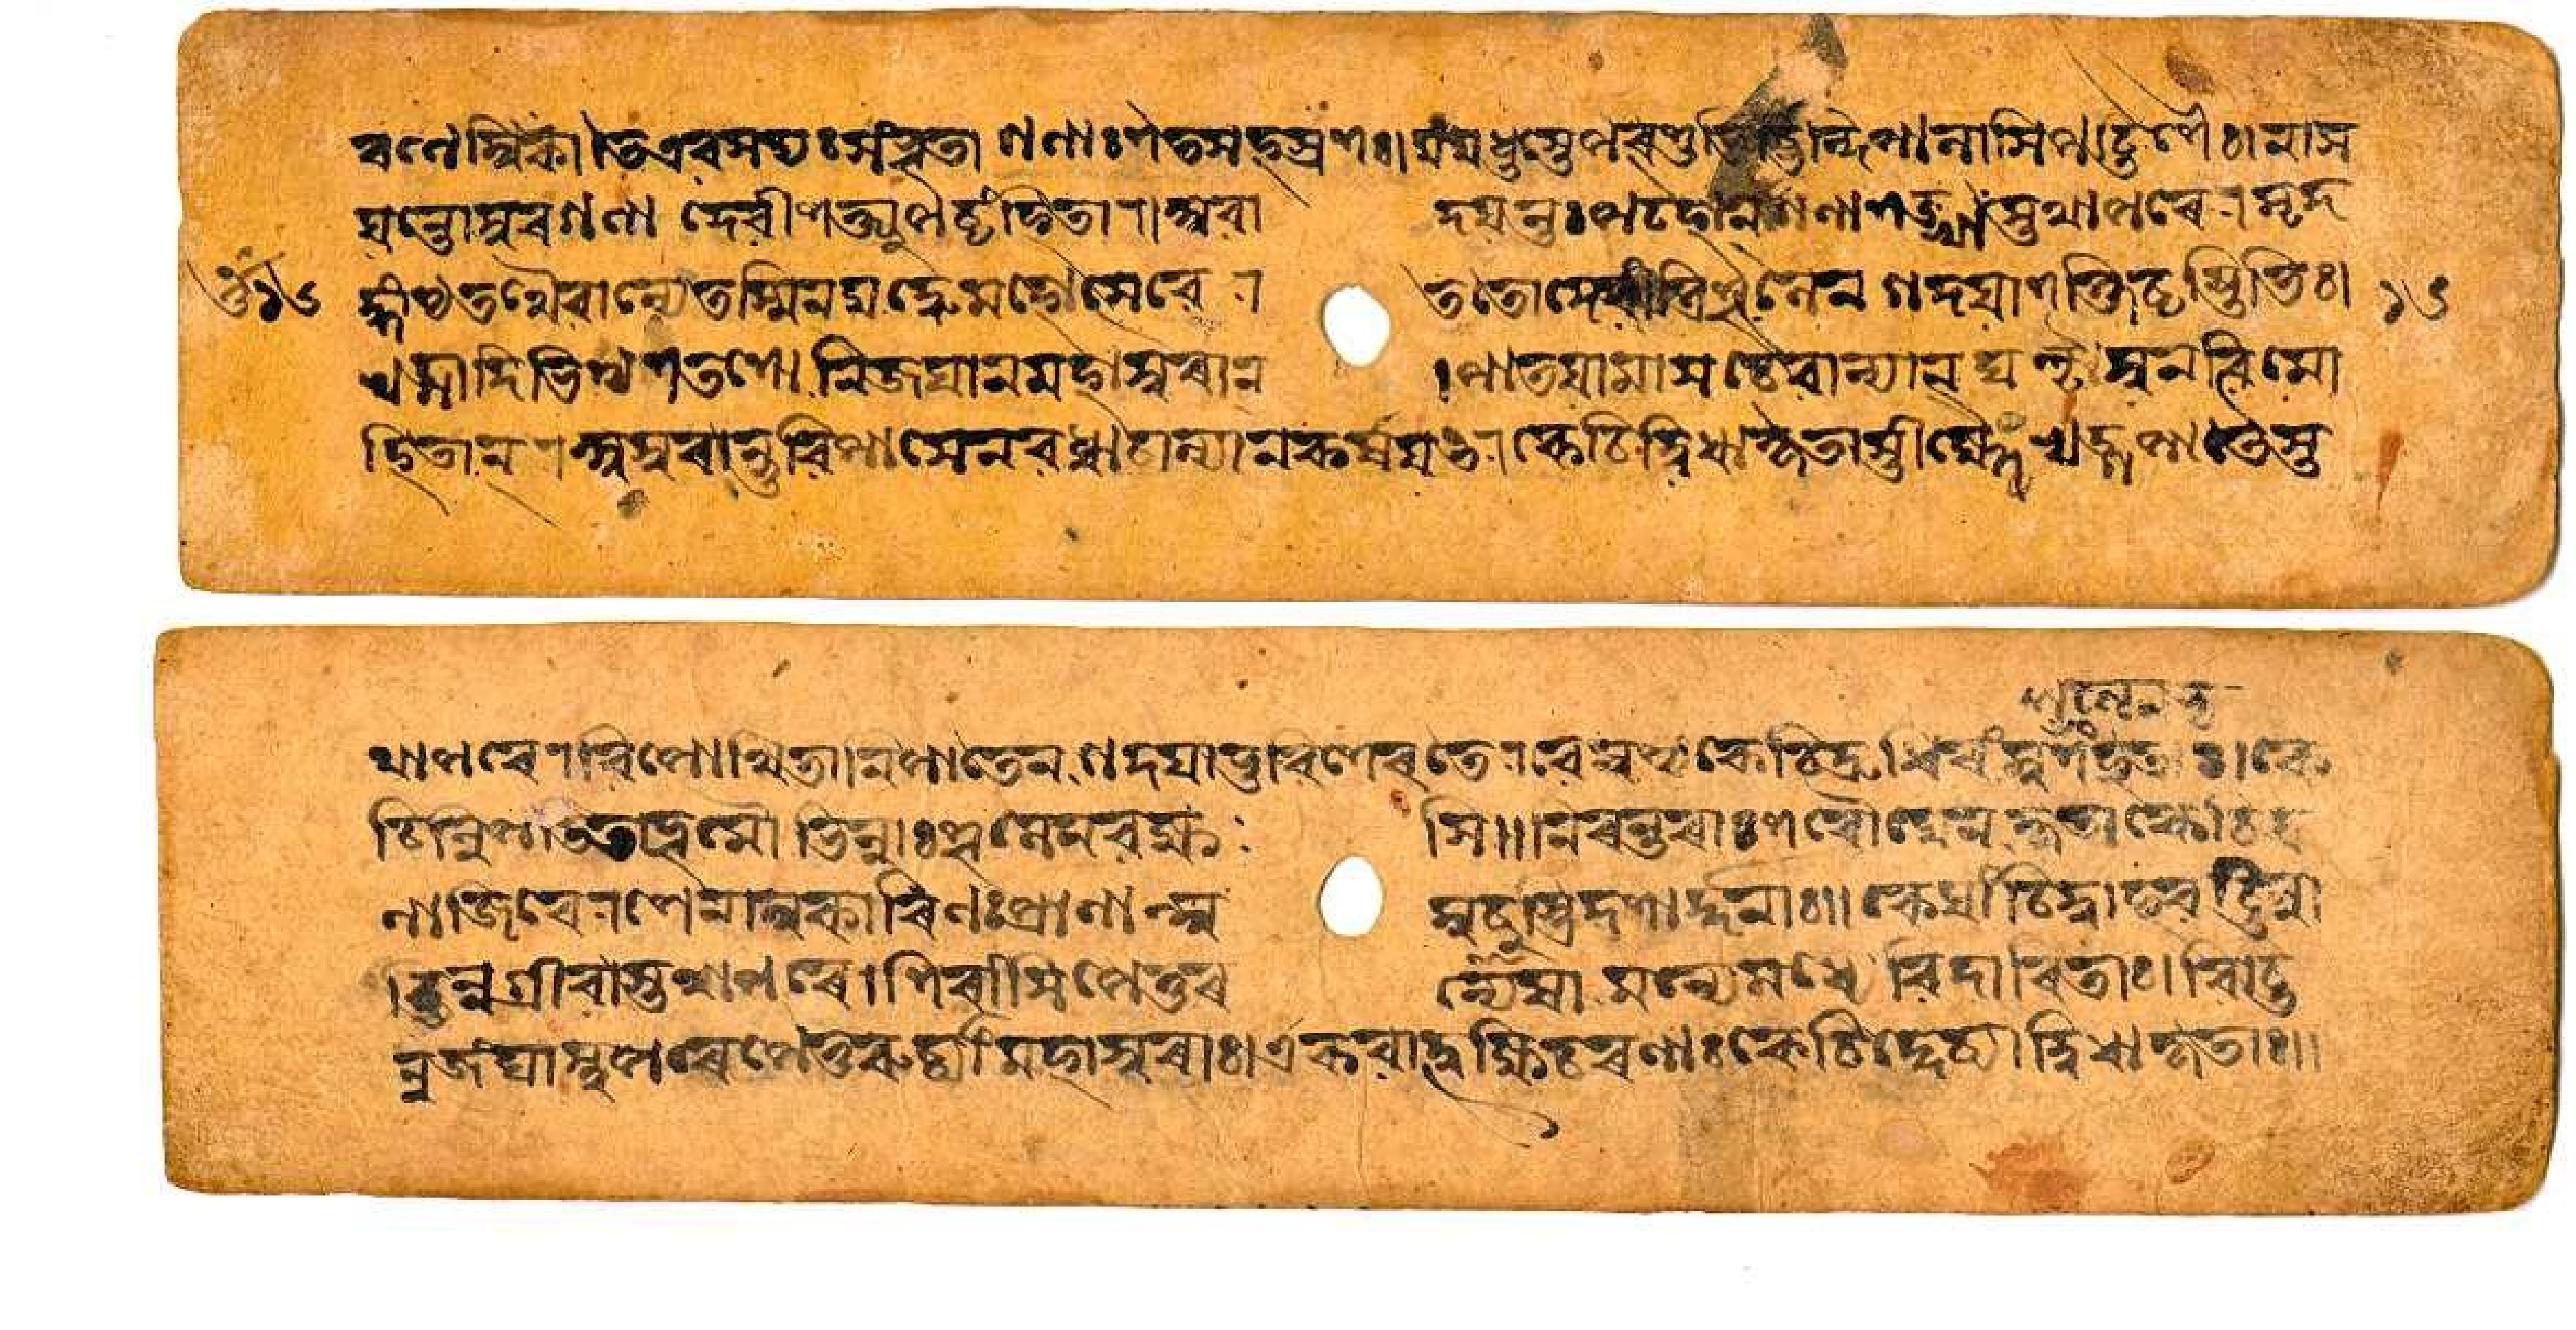 ৰণেম্বিকা।ত এব সদ্যঃ সংভূতা গণাঃ শতসহস্ৰশঃ।যুযুধুস্তে পৰশুভিৰ্ভিন্দিপালাসিপট্টিশৈঃ।নাশ
যন্তোসুৰগণা দেবীশক্ত্যুপবৃংহিতাঃ।অবা দয়ন্ত পটহান গণাঃ শঙ্খাংস্তথাপৰে। মৃদ
১৫ ঙ্গাংশ্চ তথৈবান্যে তস্মিন যুদ্ধমহোৎসবে। ততো দেবী ত্ৰিশূলেন গদয়া শক্তিবৃষ্টিভিঃ। ১৫
খড়্গাদিভিশ্চ শতশো নিজঘান মহাসুৰান ।পাতয়ামাস চৈবান্যান ঘণ্টাস্বনবিমো
হিতান। অসুৰান্ভুবি পাশেন বদ্ধা চান্যানকৰ্ষয়ৎ। কেচিদ্বিধাকৃতাস্তীক্ষ্ণৈ খড়্গপাতৈস্ত
থাপৰে।বিপোথিতা নিপাতেন গদয়া ভুবি শেৰতে। বেমুশ্চ কেচিদ্ৰুধিৰং মুশলেন ভৃশং হতাঃ।কে
চিন্নিপতিতা ভূমৌ ভিন্নাঃ শূলেন বক্ষ সি॥নিৰন্তৰাঃ শৰৌঘেন কৃতা কেচিদ্ৰ
ণাজিৰে। শেনানুকাৰিণঃ প্ৰাণান্মু মুচুস্ত্ৰিদশাৰ্দ্দনাঃ॥ কেষাংচিদ্বাহবশ্ছিন্না
শ্ছিন্নগ্ৰীবাস্তথাপৰে।শিৰাংসি পেতুৰ ন্যেষামন্যে মধ্যে বিদাৰিতাঃ।বিচ্ছি
ন্নজংঘাস্ত্বপৰে পেতুৰুৰ্ব্ব্যাং মহাসুৰাঃ।একবাহ্বক্ষিচৰণাঃ কেচিদ্দেব্যা দ্বিধাকৃতাঃ॥